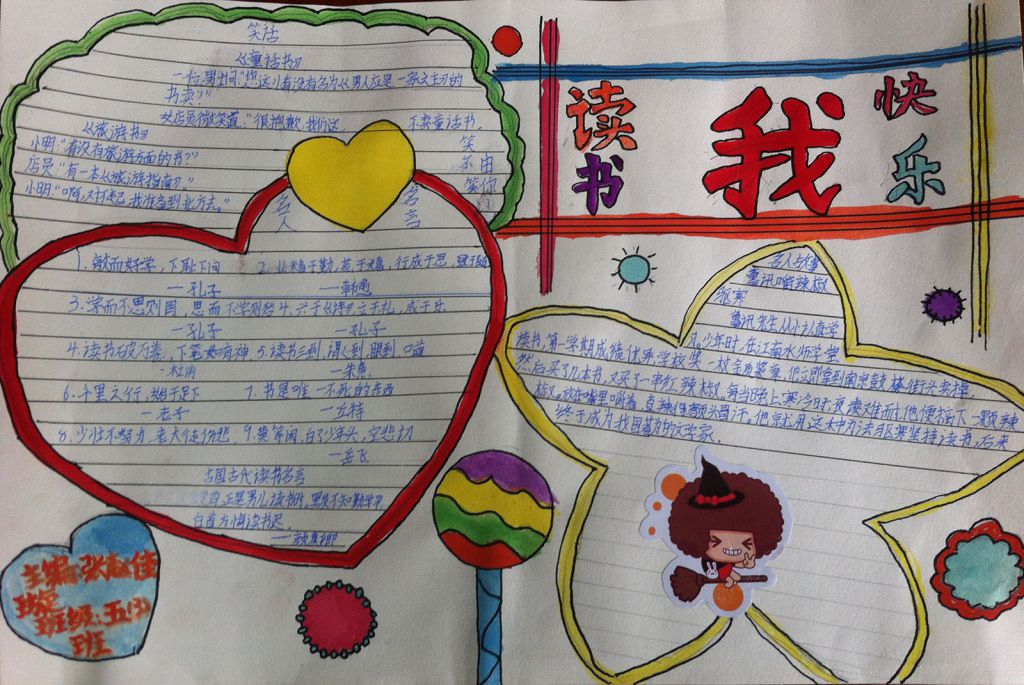 笑话
《童话书》
一位男士问:“您这儿有没有名为《男人应是一家之主》的
书卖?”
女店员微笑道:“很抱歉,我们这 不卖童话书。
《旅游书》
小明:“有没有旅游方面的书?”
店员:“有一本《旅游指南》。”
小明:“啊,对不起,我准备到北方去。”
笑
不由
笑你
名人
名言
1. 敏而好学,下耻下问
—孔子
2. 业精于勤,荒于嬉,行成于思,毁于随
—韩愈
3. 学而不思则罔,思而不学则殆
—孔子
4. 兴于《诗》,立于礼,成于乐
—孔子
4. 读书破万卷,下笔如有神
—杜甫
5. 读书三到,谓心到,眼到,口道
—朱熹
6. 千里之行,始于足下
—老子
7. 书是唯一不死的东西
—丘特
8. 少壮不努力,老大徒伤悲
9. 莫等闲,白了少年头,空悲切
—岳飞
古国古代读书名言
正是男儿读书时,黑发不知勤学早
白首方悔读书迟。
—颜真卿
主编:张
班级:五(3)
班
读书
我
快乐
名人故事
鲁讯嚼辣椒
驱寒
鲁讯先生从小认真学
习。少年时,在江南水师学堂
读书,第一学期成绩优异,学校奖一枚金质奖章,他立即拿到南京鼓楼街头卖掉,
然后买了几本书,又买了一串红辣椒。每当晚上寒冷时,夜读难耐,他便摘下一颗辣
椒,放在嘴里嚼着,直辣得额头冒汗。他就用这种办法驱寒坚持读书,后来
终于成为我国著名的文学家。